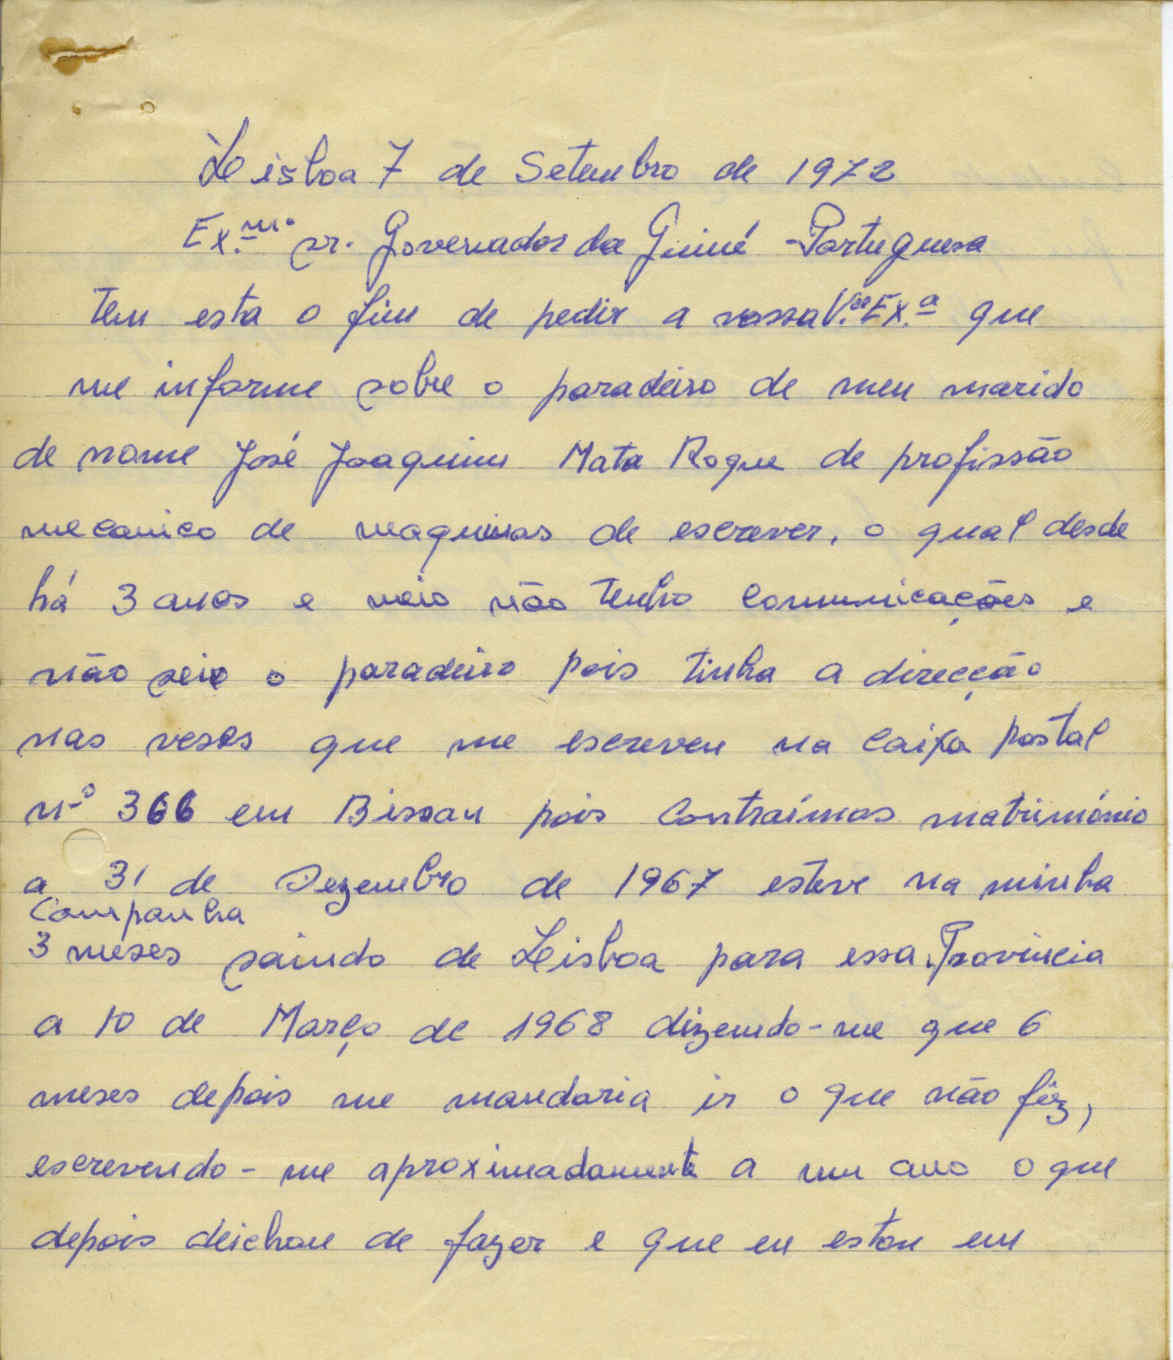 Lisboa 7 de Setembro de 1972
Ex.mo sr. Governador da Guiné Portuguesa
Tem esta o fim de pedir a vossa V.cia Ex.a que
me informe sobre o paradeiro de meu marido
de nome José Joaquim Mata Roque de profissão
mecanico de maquinas de escrever, o qual desde
há 3 anos e meio não tenho comunicacções e
não seie o paradeiro pois tinha a direcção
nas veses que me escreveu na caixa postal
n.º 366 em Bissau pois contraímos matrimónio
a 31 de Dezembro de 1967 esteve na minha
Companha
3 meses saindo de Lisboa para essa Provincia
a 10 de Março de 1968 dizendo-me que 6
meses depois me mandaria ir o que não fêz,
escrevendo-me aproximadamente a um ano o que
depois deichou de fazer e que eu estou em